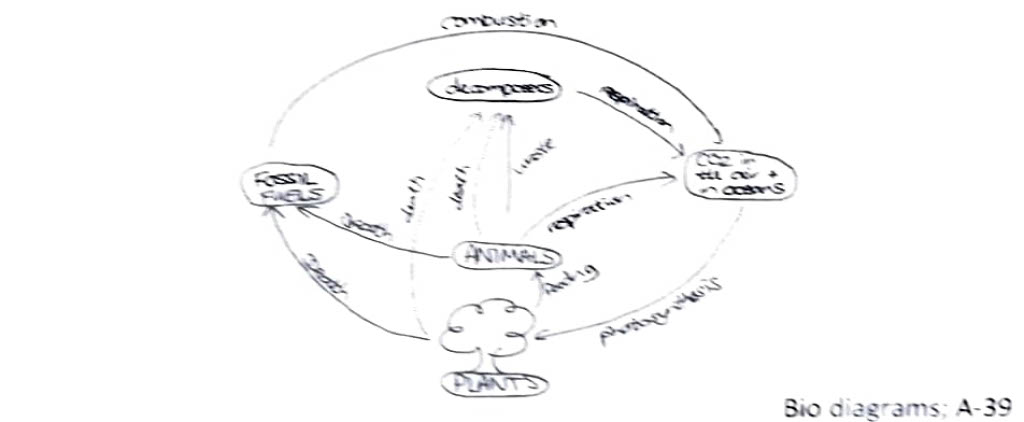 combustion
decomposers
respiration
waste
CO2 in
the air +
in oceans
FOSSIL
FUELS
death
death
Death
respiration
ANIMALS
Death
feeding
photosynthesis
PLANTS
Bio diagrams; A-39